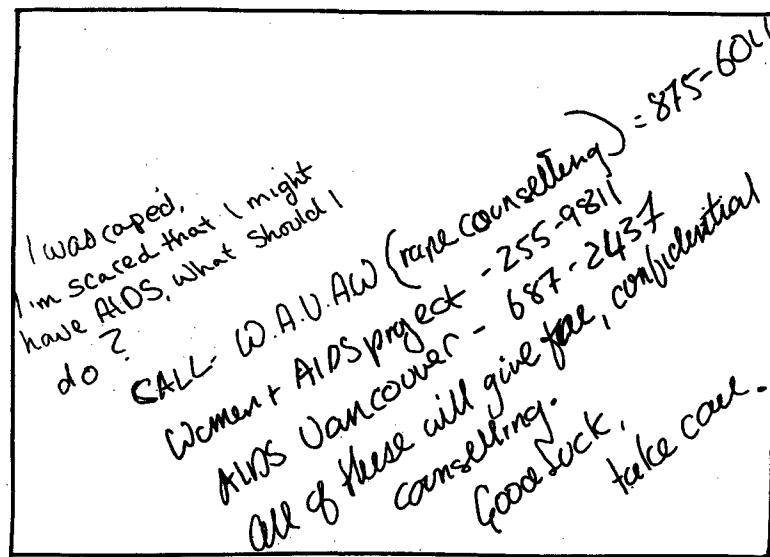 I was raped,
I'm scared that I might
have AIDS, what should I
do?
CALL - W.A.V.AW (rape counselling) = 875-6011
Women + AIDS project - 255-9811
AIDS Vancouver - 687-2437
all of these will give free, confidential
counselling.
Good Luck,
take care.